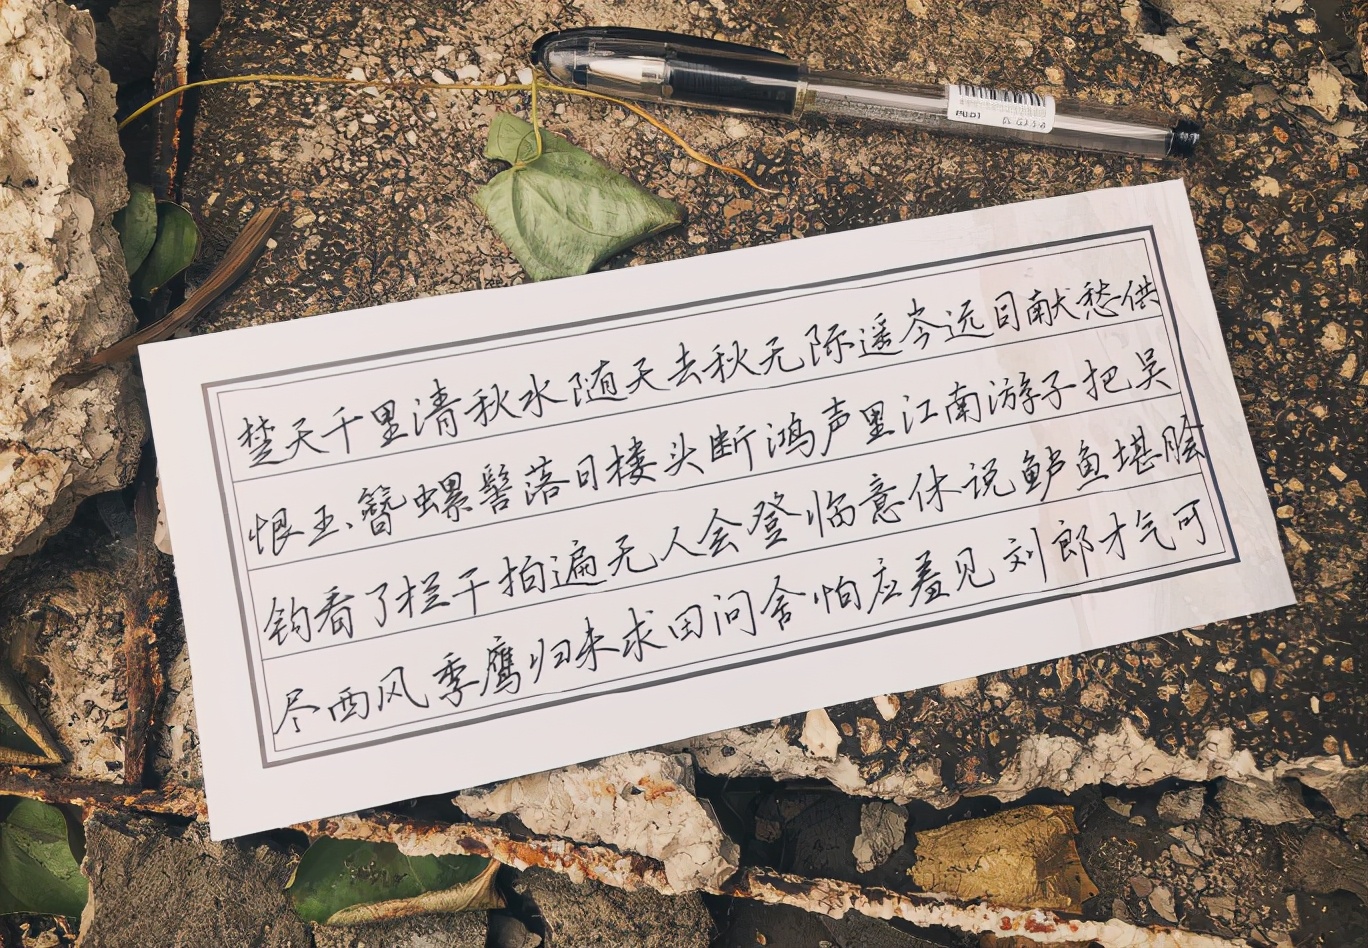 楚天千里清秋水随天去秋无际遥岑远目献愁供
恨玉簪螺髻落日楼头断鸿声里江南游子把吴
钩看了栏干拍遍无人会登临意休说鲈鱼堪脍
尽西风季鹰归来求田问舍怕应羞见刘郎才气可